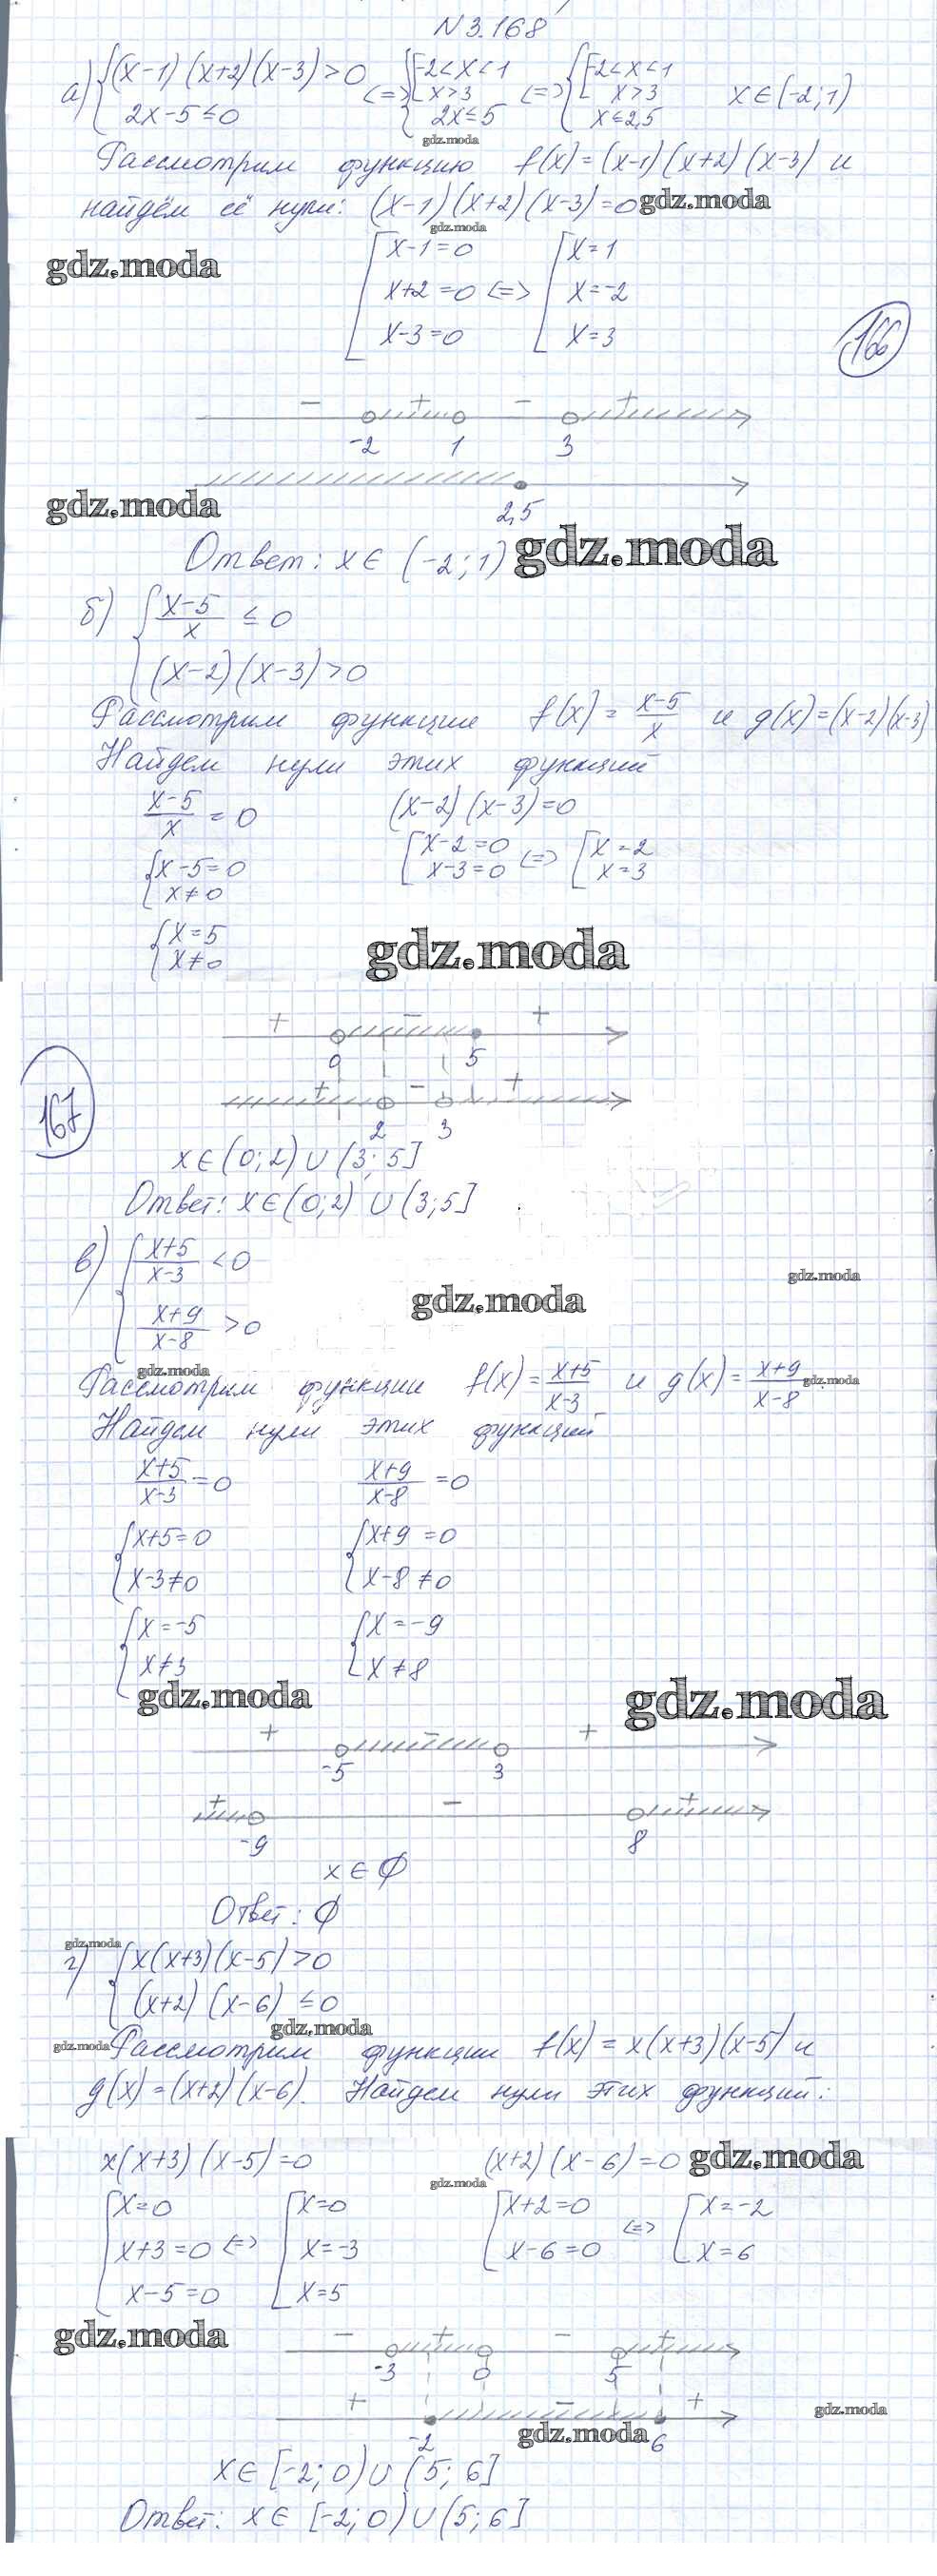 N 3.168
а) { (x-1)(x+2)(x-3)>0 <=> { [ -2<x<1 <=> { [ -2<x<1 x∈(-2;1)
x>3 x>3
2x-5≤0 2x≤5 x≤2,5
gdz.moda
Рассмотрим функцию f(x)=(x-1)(x+2)(x-3) и
найдём её нули: (x-1)(x+2)(x-3)=0 gdz.moda
gdz.moda
gdz.moda
[ x-1=0 [ x=1
x+2=0 <=> x=-2
x-3=0 x=3
166
- + - +
-2 1 3
gdz.moda
2,5
Ответ: x∈(-2;1) gdz.moda
б) { (x-5)/x ≤ 0
(x-2)(x-3)>0
Рассмотрим функции f(x)=(x-5)/x и g(x)=(x-2)(x-3)
Найдем нули этих функций
(x-5)/x = 0 (x-2)(x-3)=0
{ x-5=0 [ x-2=0 <=> [ x=2
x≠0 x-3=0 x=3
{ x=5
x≠0
gdz.moda
+ - +
0 5
167
+ - +
2 3
x∈(0;2)∪(3;5]
Ответ: x∈(0;2)∪(3;5]
в) { (x+5)/(x-3) <0
gdz.moda
gdz.moda
(x+9)/(x-8) >0
gdz.moda
Рассмотрим функции f(x)=(x+5)/(x-3) и g(x)=(x+9)/(x-8) gdz.moda
Найдем нули этих функций
(x+5)/(x-3)=0 (x+9)/(x-8)=0
{ x+5=0 { x+9=0
x-3≠0 x-8≠0
{ x=-5 { x=-9
x≠3 x≠8
gdz.moda gdz.moda
+ - +
-5 3
+ - +
-9 8
x∈∅
Ответ: ∅
gdz.moda
г) { x(x+3)(x-5)>0
(x+2)(x-6)≤0
gdz.moda
gdz.moda Рассмотрим функции f(x)=x(x+3)(x-5) и
g(x)=(x+2)(x-6). Найдем нули этих функций:
x(x+3)(x-5)=0 (x+2)(x-6)=0 gdz.moda
gdz.moda
[ x=0 [ x=0 [ x+2=0 <=> [ x=-2
x+3=0 <=> x=-3 x-6=0 x=6
x-5=0 x=5
gdz.moda
- + - +
-3 0 5
+ - +
gdz.moda
-2 gdz.moda 6
x∈[-2;0)∪(5;6]
Ответ: x∈[-2;0)∪(5;6]